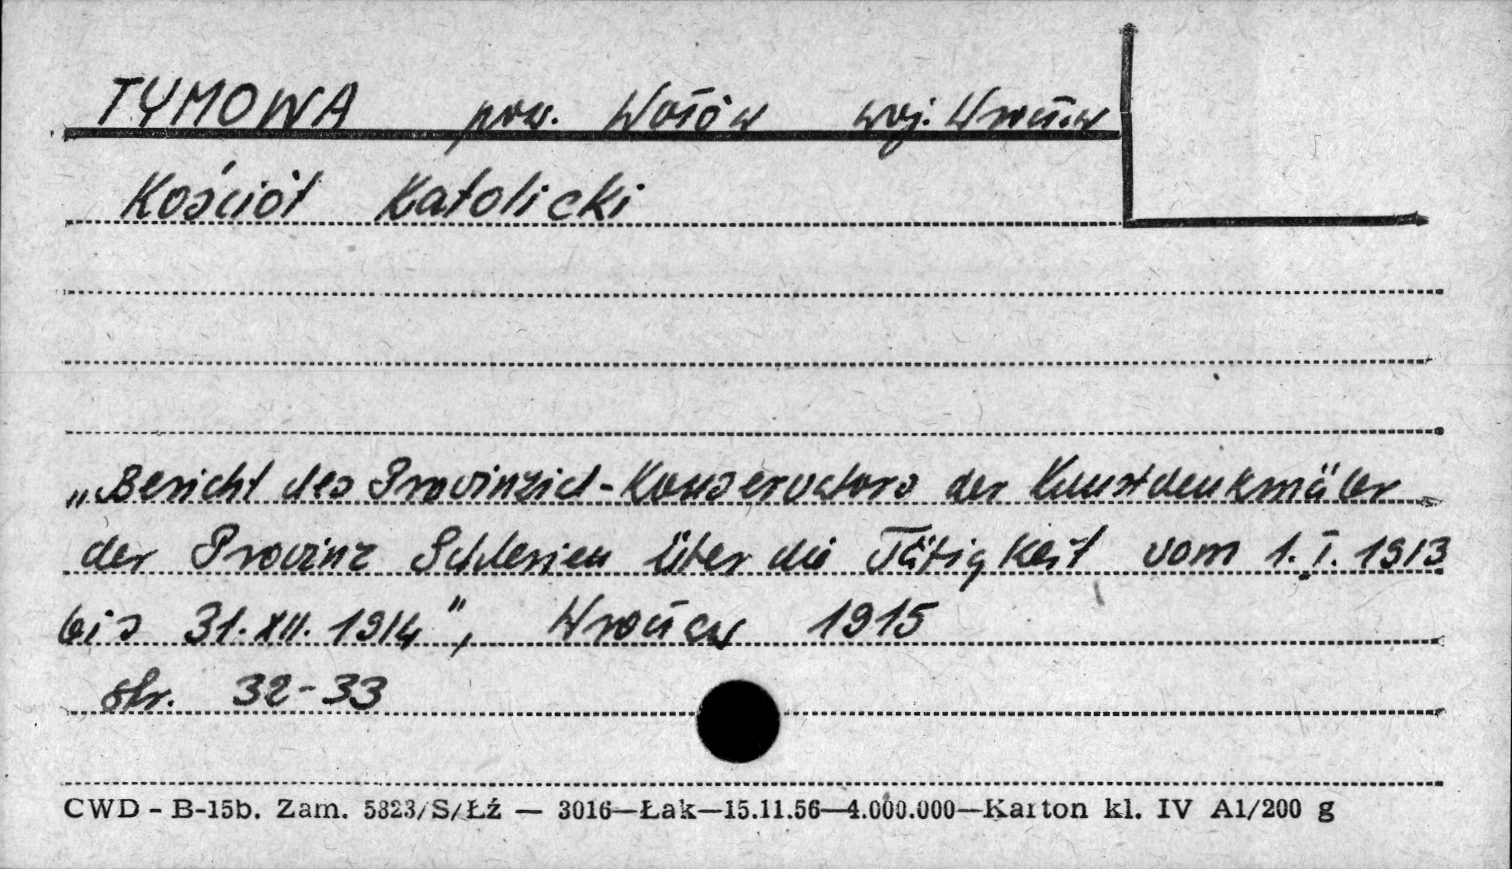 TYMOWA pow. Wołów woj. Wrocław
Kościół Katolicki
„Bericht des Provinzial-Konservators der Kunstdenkmäler
der Provinz Schlesien über die Tätigkeit vom 1.I.1913
bis 31.XII.1914", Wrocław 1915
str. 32-33
CWD - B-15b. Zam. 5823/S/Łź — 3016—Łak—15.11.56—4.000.000—Karton kl. IV A1/200 g